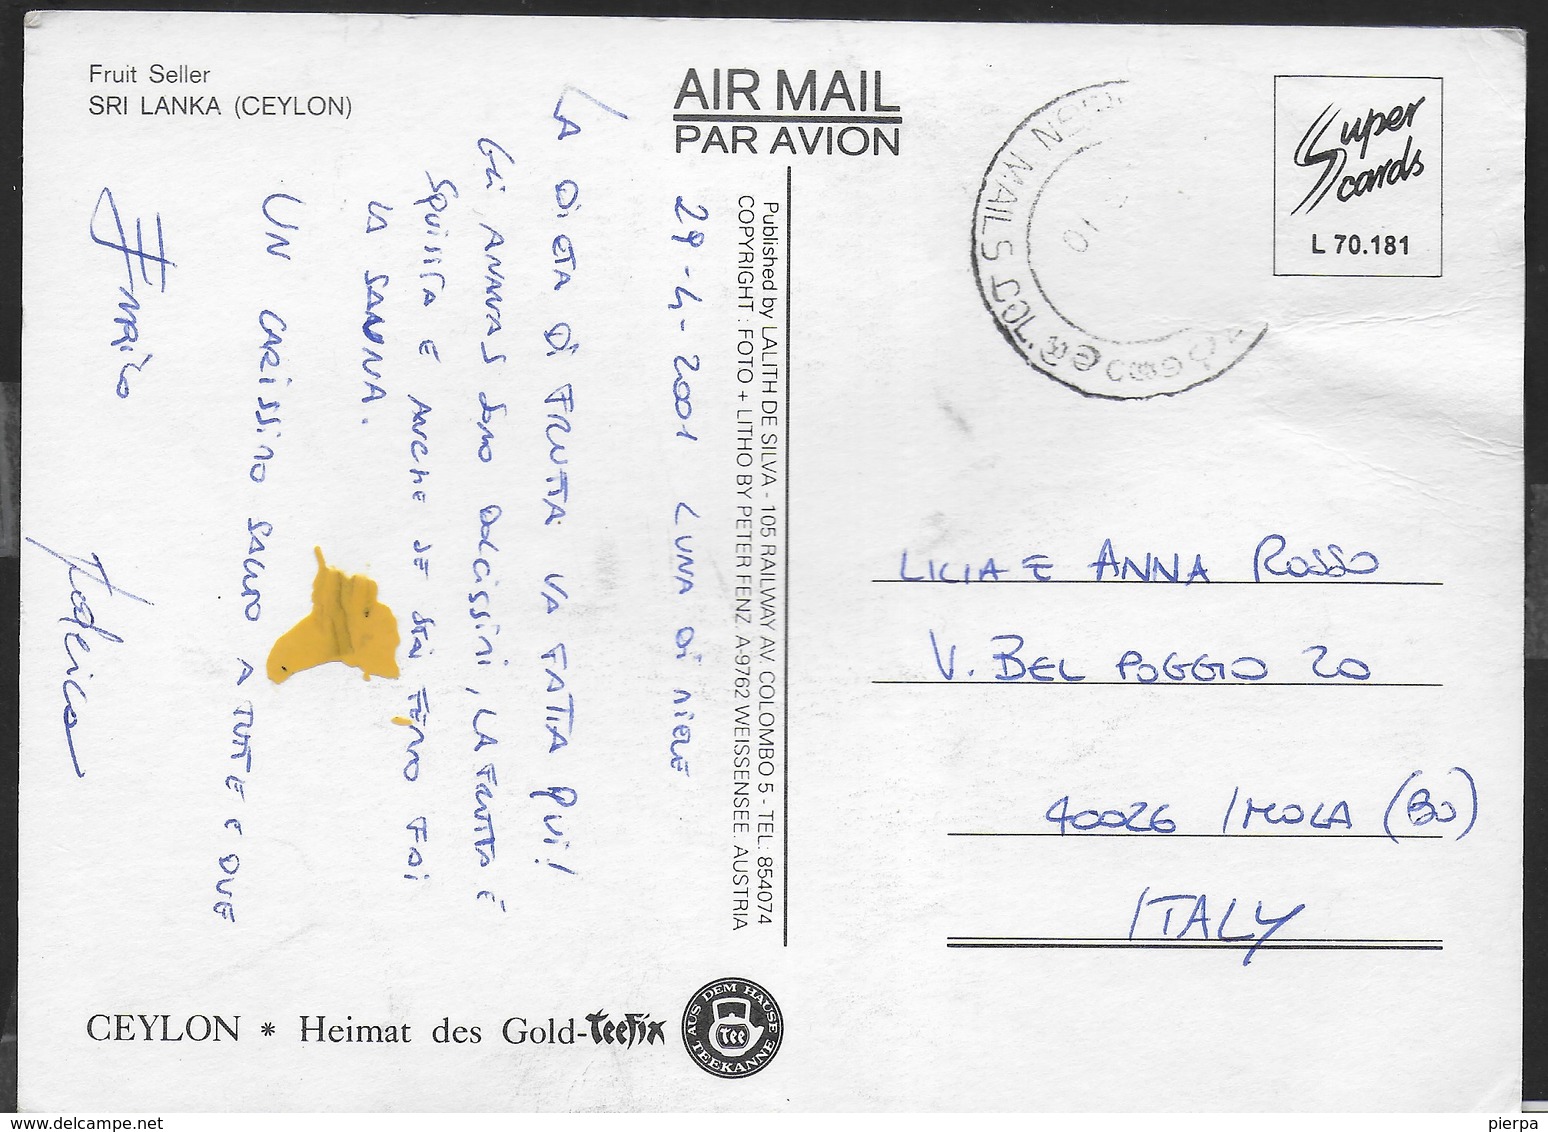 Fruit Seller
SRI LANKA (CEYLON)
AIR MAIL
PAR AVION
Super
cards
L 70.181
29-4-2001 LUNA DI MIELE
LA DIETA DI FRUTTA VA FATTA QUI!
GLI ANANAS SONO DOLCISSIMI, LA FRUTTA È
SQUISITA E ANCHE SE STAI FERMO FAI
LA SAUNA.
UN CARISSIMO SALUTO A TUTTE E DUE
Enrico
Federica
Published by LALITH DE SILVA - 105 RAILWAY AV. COLOMBO 5 - TEL: 854074
COPYRIGHT : FOTO + LITHO BY PETER FENZ A-9762 WEISSENSEE. AUSTRIA
LICIA E ANNA ROSSO
V. BEL POGGIO 20
40026 IMOLA (BO)
ITALY
CEYLON * Heimat des Gold-Teefix
AUS DEM HAUSE
TEE
TEEKANNE
MAILS
pierpa